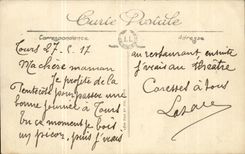 Carte Postale
Correspondance
Adresse
Tours 27. 5. 17
Ma chère maman
Je profite de la
Pentecôte pour passer une
bonne journée à Tours
En ce moment je bois
un picon, puis j'irais
au restaurant ensuite
j'irais au théâtre
Caresses à tous